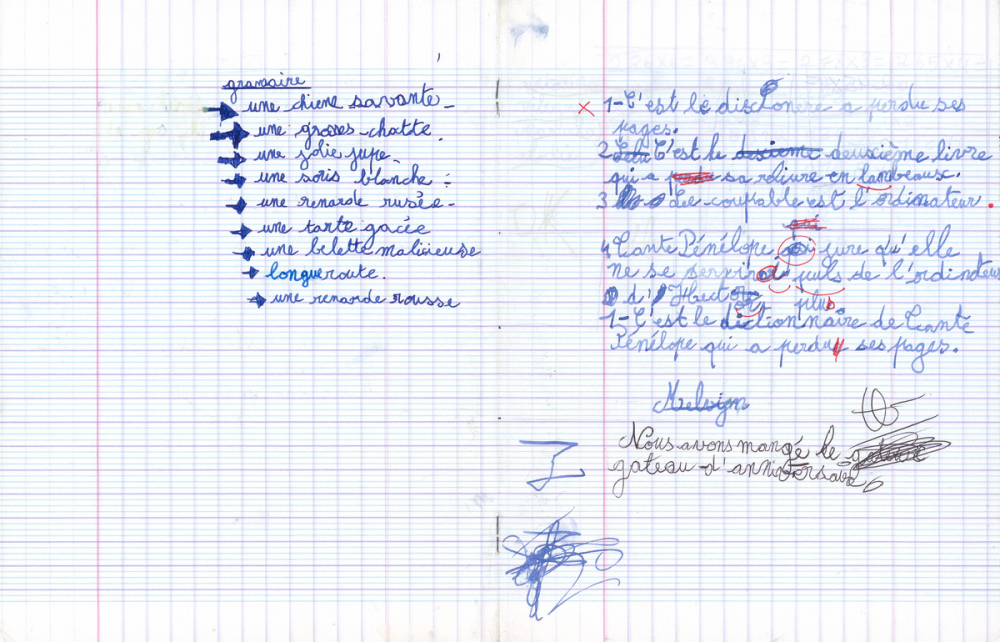 grammaire
une chiene savante
une grosses chatte.
une jolie jupe.
une soris blanche
une renarde rusée
une tarte gacée
une belette malicieuse
longue route.
une renarde rousse
1-C'est le disctionere a perdu ses
pages.
2 C'est le desieme deuxième livre
qui a perdu sa reliure en lambeaux.
3 Le coupable est l'ordinateur.
4 Tante Pénélope jure qu'elle
ne se servira puls de l'ordinateur
d'Hector
plus
1-C'est le dictionnaire de Tante
Pénélope qui a perdu ses pages.
Melvyn
Nous avons mangé le
gateau d'anniversaire